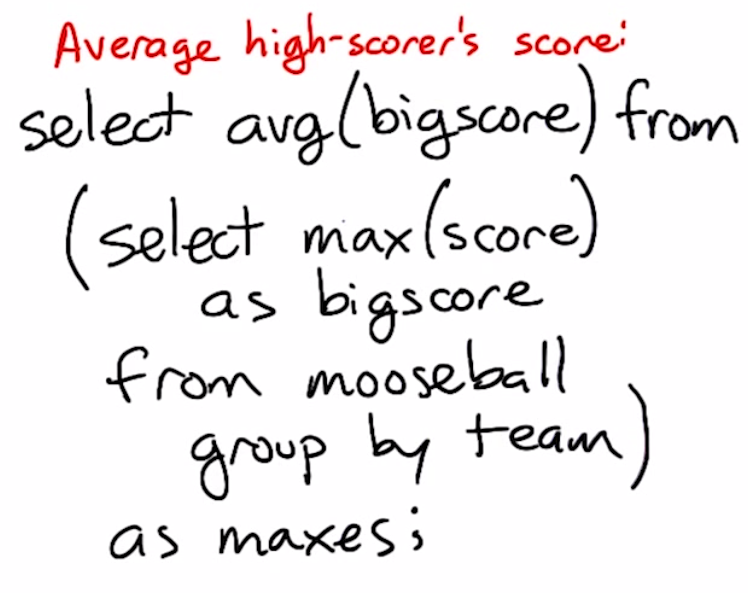 Average high-scorer's score:
select avg(bigscore) from
(select max(score)
as bigscore
from mooseball
group by team)
as maxes;